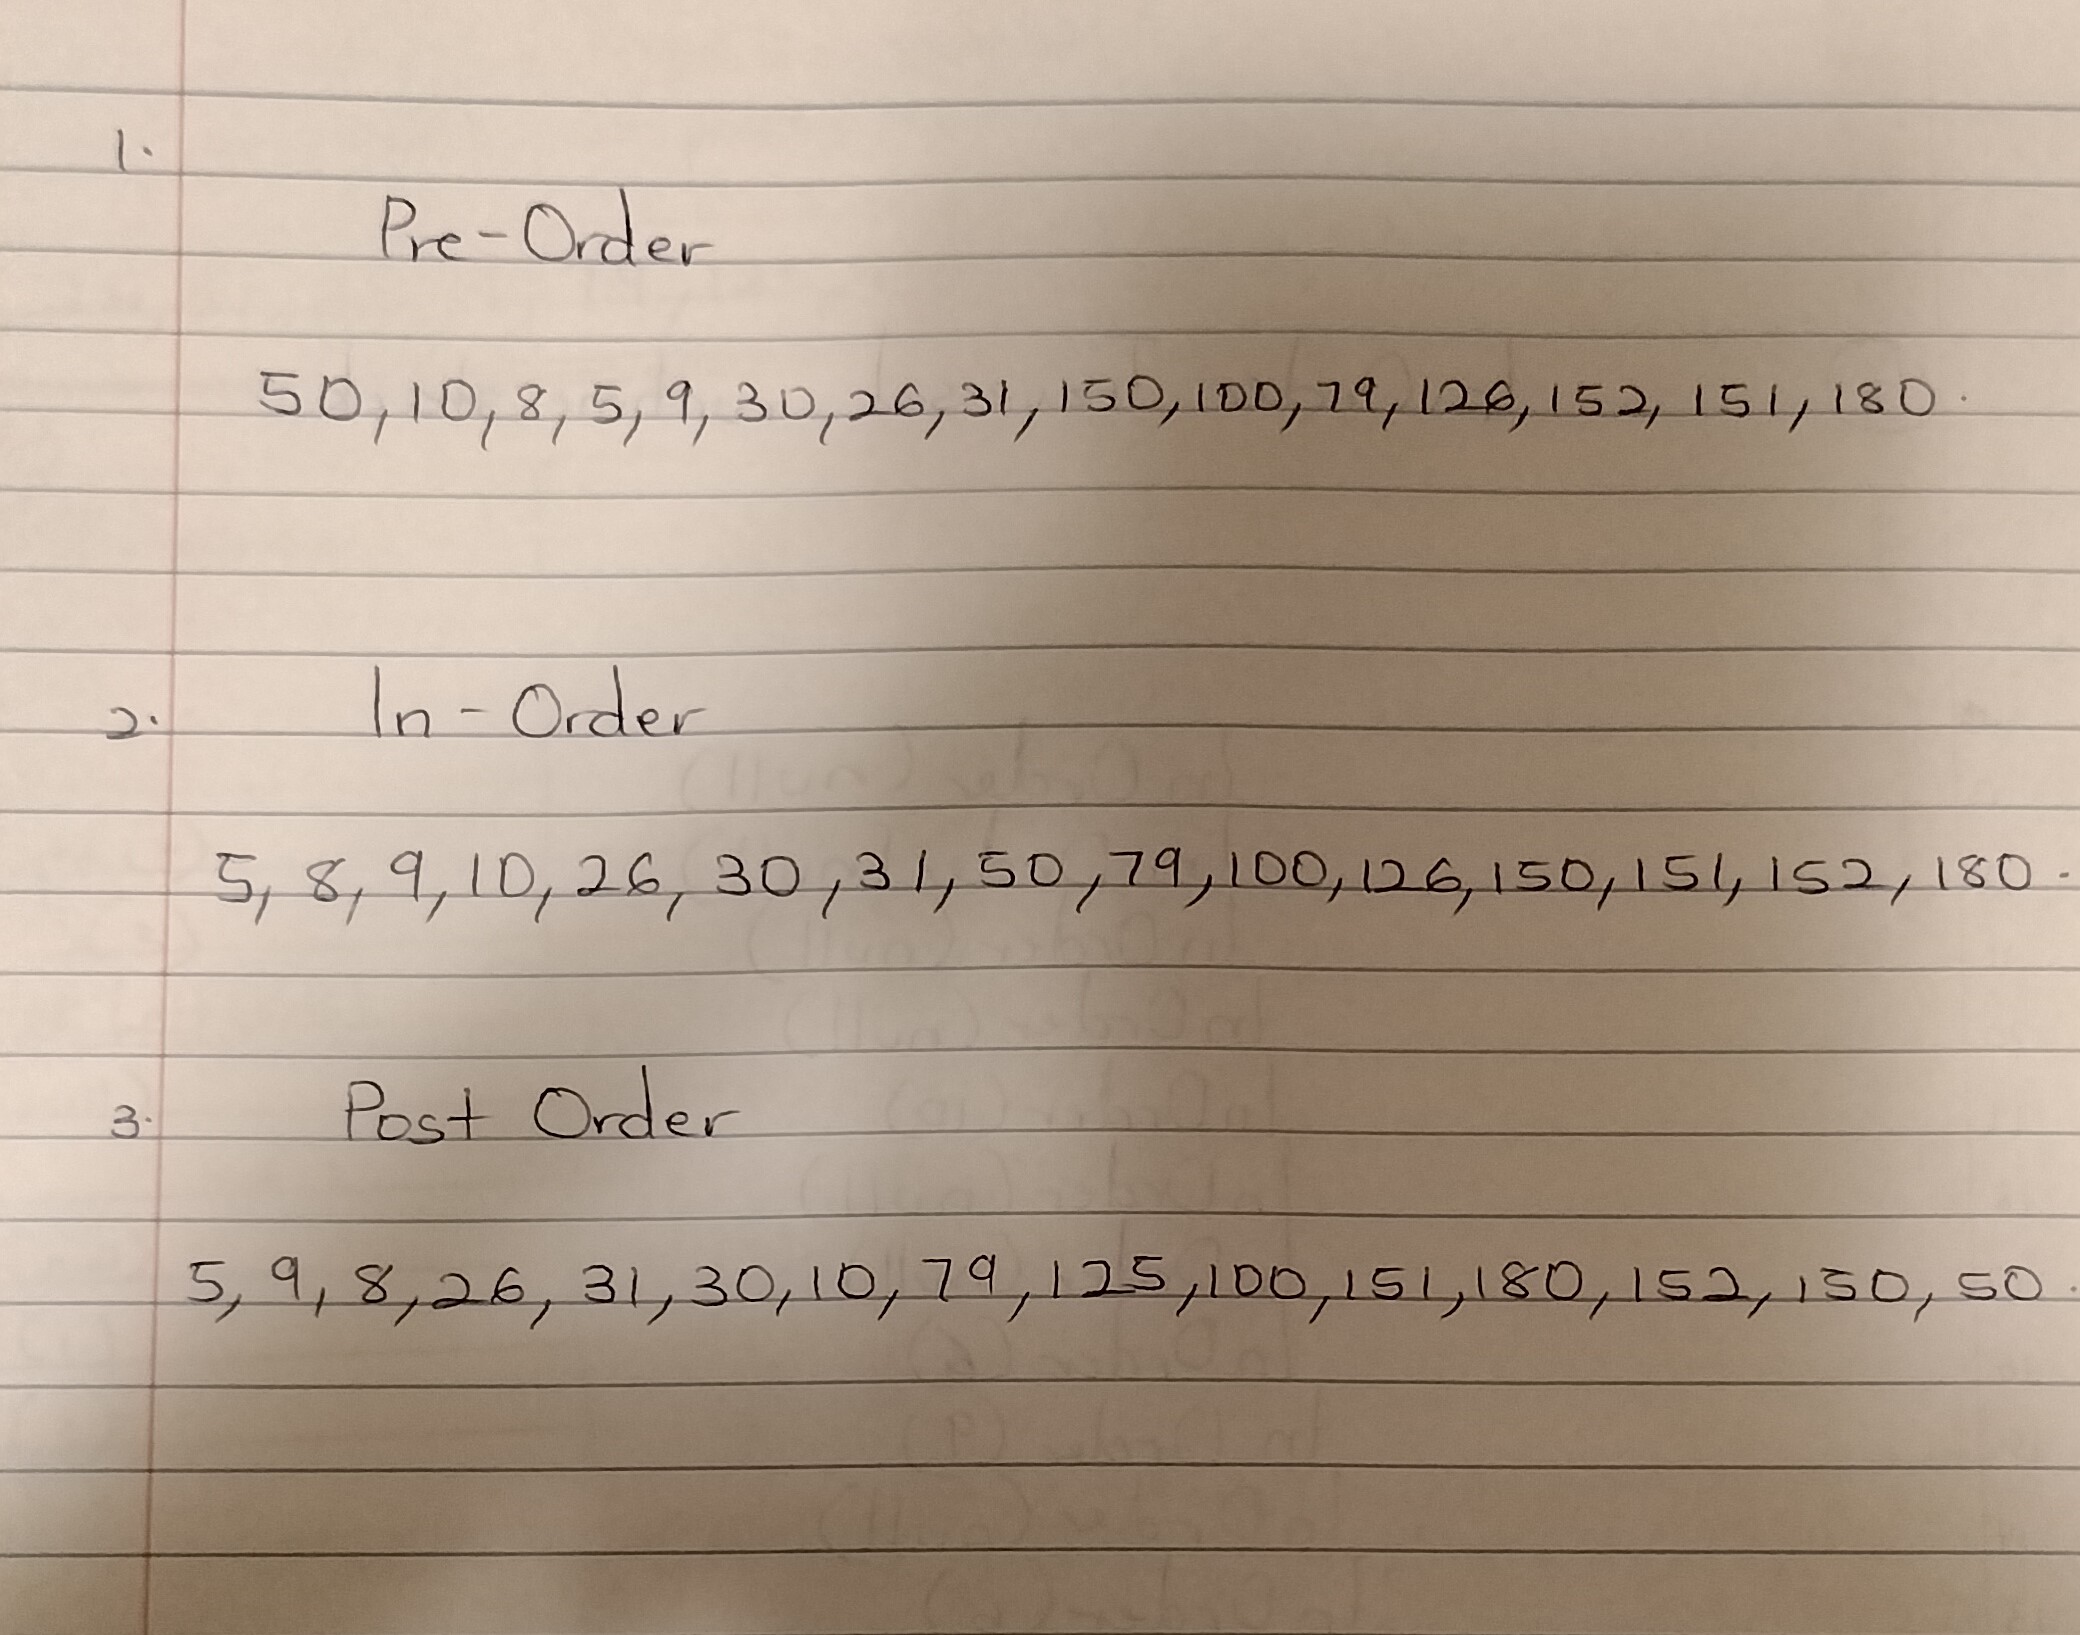 1.
Pre-Order
50, 10, 8, 5, 9, 30, 26, 31, 150, 100, 79, 126, 152, 151, 180.
2. In-Order
5, 8, 9, 10, 26, 30, 31, 50, 79, 100, 126, 150, 151, 152, 180.
3. Post Order
5, 9, 8, 26, 31, 30, 10, 79, 125, 100, 151, 180, 152, 150, 50.